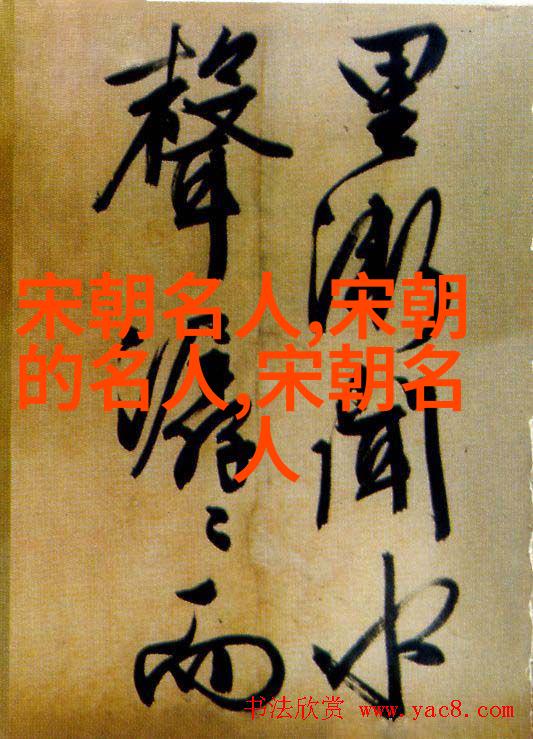 里漸聞水
聲潺〻而
宋朝名人,宋朝
的名人,宋朝名
人
书法欣赏 www.yac8.com